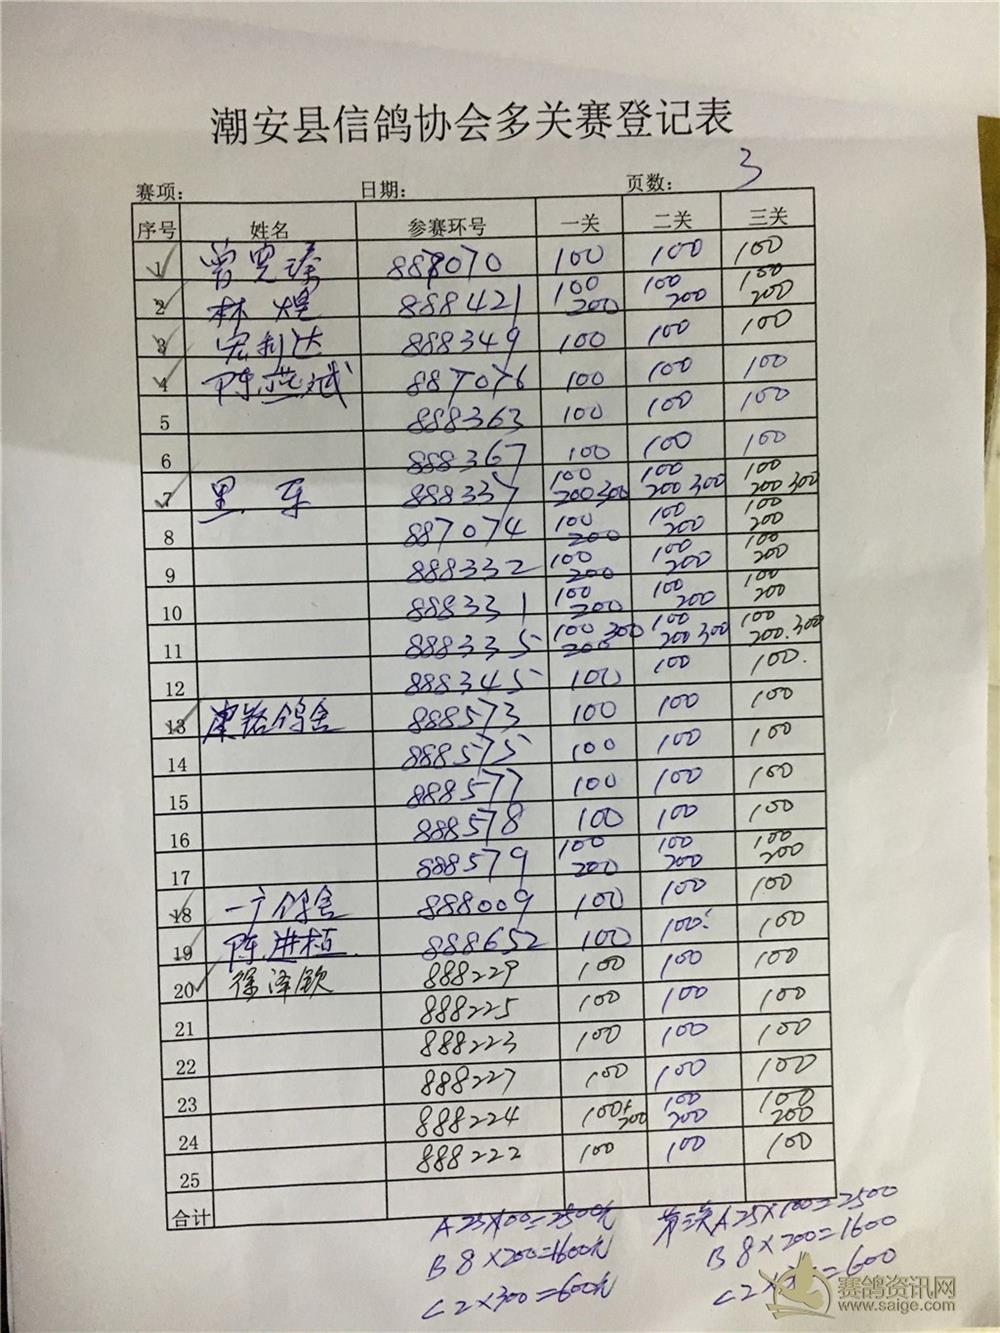 潮安县信鸽协会多关赛登记表
3
赛项: 日期: 页数:
序号 姓名 参赛环号 一关 二关 三关
1 888070 100 100 100
2 林煌 888421 100 200 100 200 100 200
3 宏利达 888349 100 100 100
4 陈燕斌 887076 100 100 100
5 888363 100 100 100
6 888367 100 100 100
7 黑车 888337 100 200 300 100 200 300 100 200 300
8 887074 100 200 100 200 100 200
9 888332 100 200 100 200 100 200
10 888331 100 200 100 200 100 200
11 888335 100 300 200 100 200 300 100 200.300
12 888345 100 100 100.
13 鸽舍 888573 100 100 100
14 888575 100 100 100
15 888577 100 100 100
16 888578 100 100 100
17 888579 100 200 100 200 100 200
18 一广鸽舍 888009 100 100 100
19 陈进植. 888652 100 100 100
20 徐泽钦 888229 100 100 100
21 888225 100 100 100
22 888223 100 100 100
23 888227 100 100 100
24 888224 100+200 100 200 100 200
25 888222 100 100 100
合计
A 25×100=2500元 第三次A 25×100=2500
B 8×200=1600元 B 8×200=1600
C 2×300=600元 C 2×300=600
赛鸽资讯网
www.saige.com